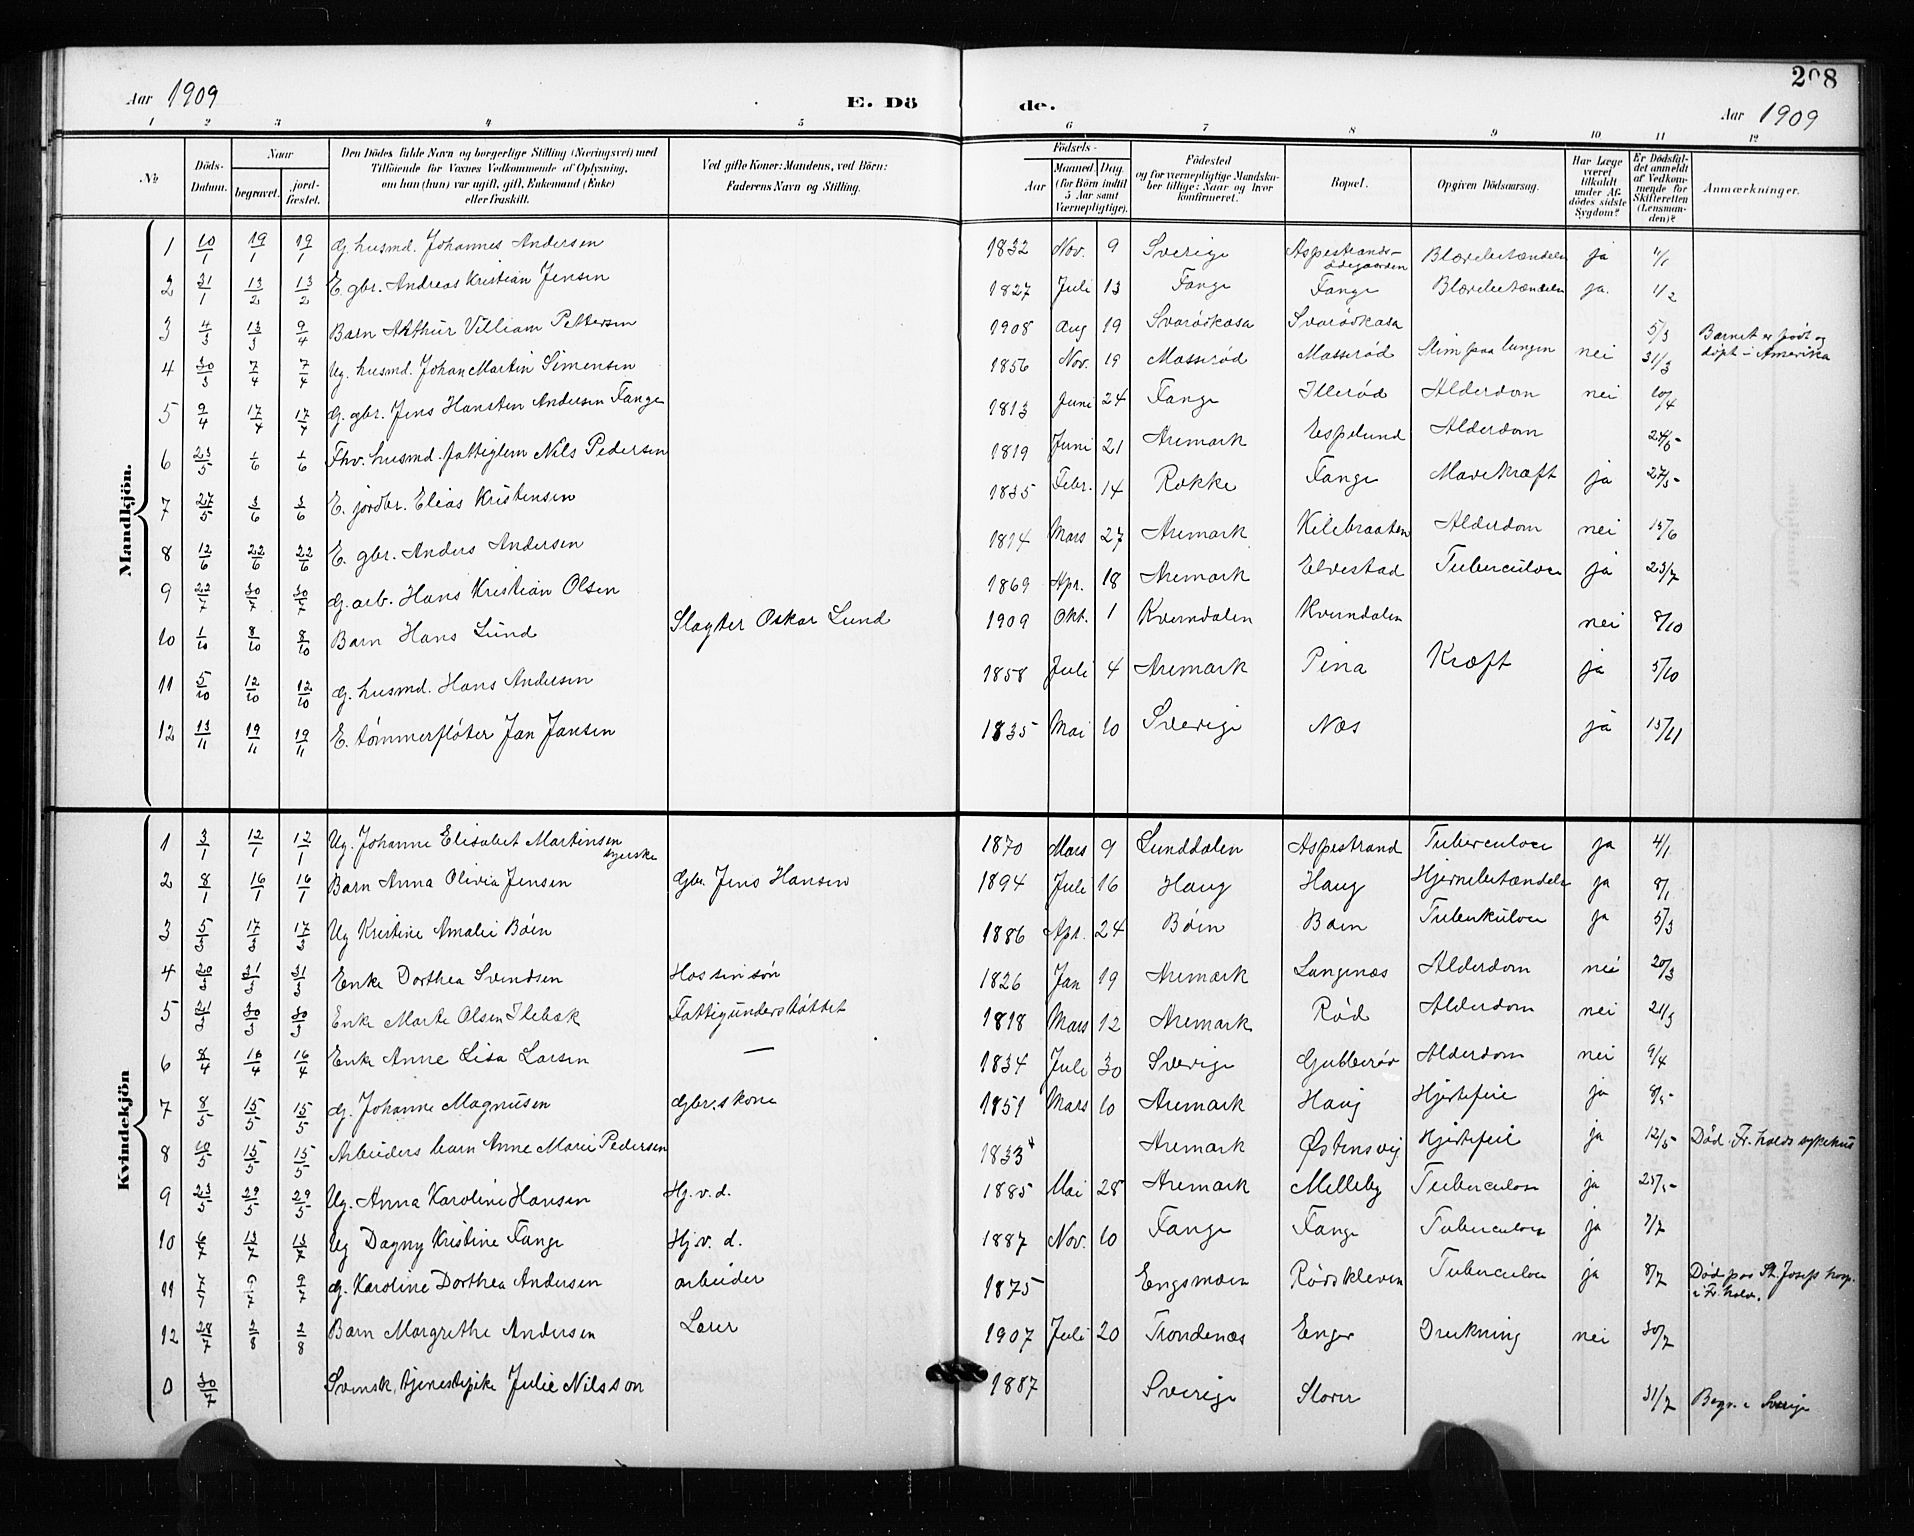 208
Aar 1909 E. Dö de. Aar 1909
1 2 3 4 5 6 7 8 9 10 11 12
№ Döds-Datum. Naar begravet. jord-fæstet. Den Dödes fulde Navn og borgerlige Stilling (Næringsvei) med Tilföiende for Voxnes Vedkommende af Oplysning, om han (hun) var ugift, gift, Enkemand (Enke) eller fraskilt. Ved gifte Koner: Mandens, ved Börn: Faderens Navn og Stilling. Födsels- Aar Maaned Dag (for Börn indtil 5 Aar samt Værnepligtige). Födested og for værnepligtige Mandska-ber tillige: Naar og hvor konfirmeret. Bopæl. Opgiven Dödsaarsag. Har Læge været tilkaldt under Af-dödes sidste Sygdom? Er Dödsfal-det anmeldt af Vedkom-mende for Skifteretten (Lensman-den)? Anmærkninger.
Mandkjön.
1 10/1 19/1 19/1 G. husmd. Johannes Andersen 1832 Nov. 9 Sverige Aspestrands-ødegaarden Blærebetændelse ja 11/1
2 31/1 13/2 13/2 E. gbr. Andreas Kristian Jensen 1827 Juli 13 Fange Fange Blærebetændelse ja. 1/2
3 4/3 13/3 9/4 Barn Arthur Villiam Pettersen 1908 Aug 19 Svarødkasa Svarødkasa 5/3 Barnet er født og døpt i Amerika
4 30/3 7/4 7/4 Ug. husmd. Johan Martin Simensen 1856 Nov. 19 Masserød Masserød Slim paa lungen nei 31/3
5 9/4 17/4 17/4 G. gbr. Jens Hansten Andersen Fange 1813 Juni 24 Fange Illerød Alderdom nei 10/4
6 23/5 1/6 1/6 Fhv. husmd. fattiglem Nils Pedersen 1819 Juni 21 Aremark Espelund Alderdom 24/5
7 27/5 3/6 3/6 E. jordbr. Elias Kristensen 1835 Febr. 14 Rokke Fange Mavekræft ja 27/5
8 12/6 22/6 22/6 E. gbr. Anders Andersen 1814 Mars 27 Aremark Kilebraaten Alderdom nei 15/6
9 22/7 30/7 30/7 G. arb. Hans Kristian Olsen 1869 Apr. 18 Aremark Elvestad Tuberculose ja 23/7
10 1/10 8/10 8/10 Barn Hans Lund Slagter Oskar Lund 1909 Okt. 1 Kverndalen Kverndalen nei 8/10
11 5/10 12/10 12/10 G. husmd. Hans Andersen 1858 Juli 4 Aremark Pina Kræft ja 5/10
12 13/11 19/11 19/11 E. tømmerfløter Jan Jansen 1835 Mai 10 Sverige Næs ja 15/11
Kvindekjön
1 3/1 12/1 12/1 Ug. Johanne Elisabet Martinsen syerske 1870 Mars 9 Lunddalen Aspestrand Tuberculose ja 4/1
2 8/1 16/1 16/1 Barn Anna Olivia Jensen Gbr. Jens Hansen 1894 Juli 16 Haug Haug Hjernebetændelse ja 8/1
3 5/3 17/3 17/3 Ug Kristine Amalie Bøen 1886 Apr. 24 Bøen Bøen Tuberkulose ja 5/3
4 20/3 31/3 31/3 Enke Dorthea Svendsen Hos sin søn 1826 Jan 19 Aremark Langenæs Alderdom nei 20/3
5 21/3 30/3 30/3 Enke Marte Olsen Ilebæk Fattigunderstøttet 1818 Mars 12 Aremark Rød Alderdom nei 21/3
6 8/4 16/4 16/4 Enke Anne Lisa Larsen — 1834 Juli 30 Sverige Gubberød Alderdom nei 9/4
7 8/5 15/5 15/5 G. Johanne Magnusen Gbr.s kone 1851 Mars 10 Aremark Haug Hjertefeil ja 8/5
8 10/5 15/5 15/5 Arbeiders barn Anne Marie Pedersen 1833 Aremark Østensvig Hjertefeil ja 12/5 Død Fr.halds sykehus
9 23/5 29/5 29/5 Ug. Anna Karoline Hansen Hj. v. d. 1885 Mai 28 Aremark Melleby Tuberculose ja 25/5
10 6/7 13/7 13/7 Ug Dagny Kristine Fange Hj. v. d. 1887 Nov. 10 Fange Fange Tuberculose ja 7/7
11 7/7 9/7 9/7 G. Karoline Dorthea Andersen arbeider 1875 Engsmoen Rødskleven Tuberculose ja 8/7 Død paa St. Josefs hosp. i Fr.hald.
12 28/7 2/8 2/8 Barn Margrethe Andersen Lærer 1907 Juli 20 Trondenæs Enger Drukning nei 30/7
0 30/7 Svensk tjenestepike Julie Nilsson 1887 Sverige Storer 31/7 Begr. i Sverige